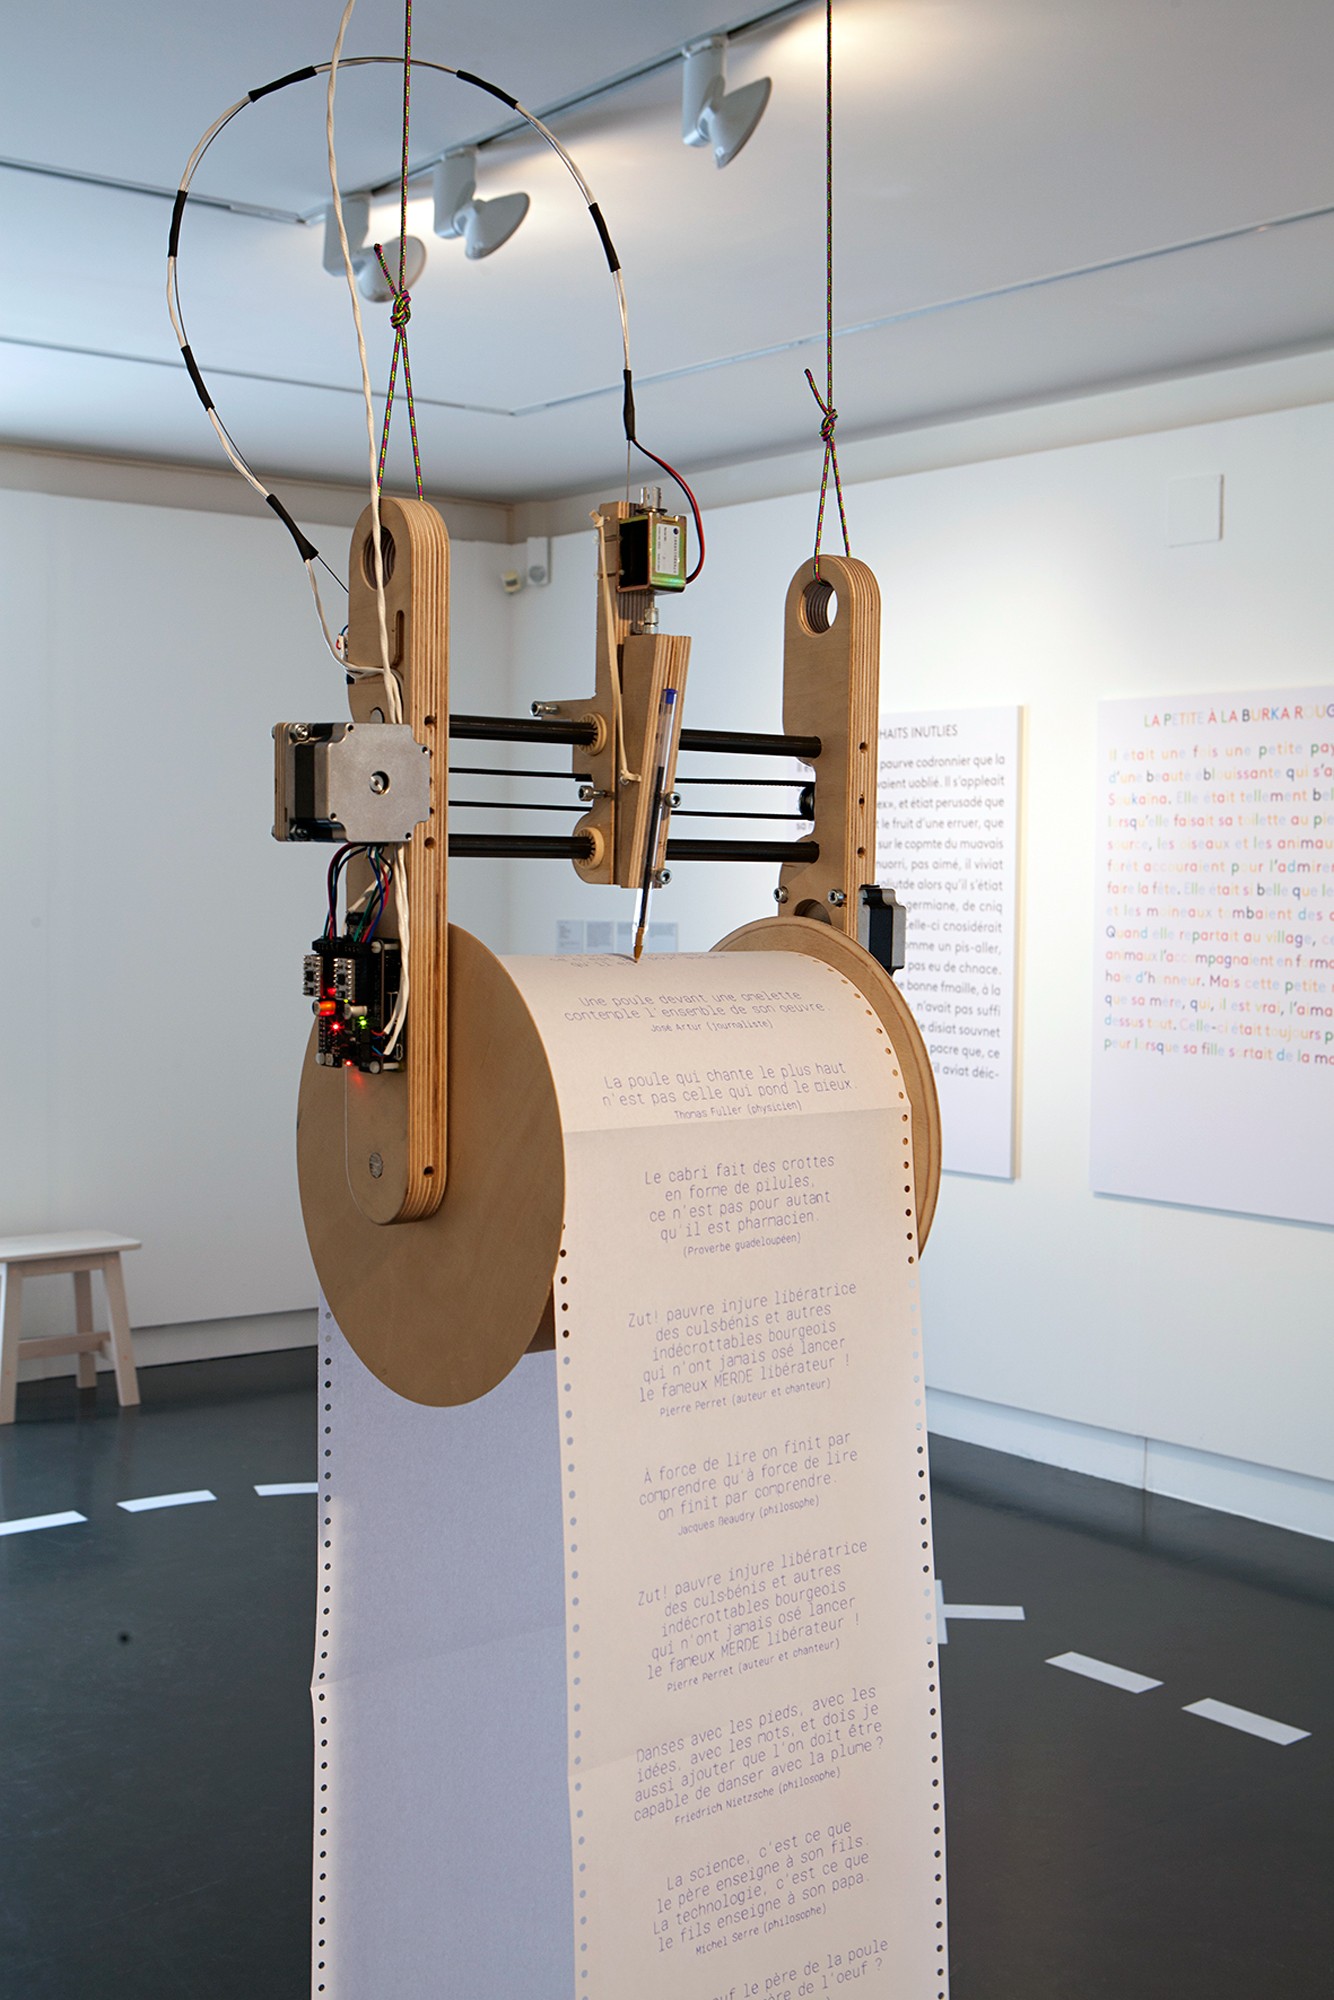 Une poule devant une omelette
contemple l'ensemble de son oeuvre.
José Artur (journaliste)
La poule qui chante le plus haut
n'est pas celle qui pond le mieux.
Thomas Fuller (physicien)
Le cabri fait des crottes
en forme de pilules,
ce n'est pas pour autant
qu'il est pharmacien.
(Proverbe guadeloupéen)
Zut! pauvre injure libératrice
des culs-bénis et autres
indécrottables bourgeois
qui n'ont jamais osé lancer
le fameux MERDE libérateur !
Pierre Perret (auteur et chanteur)
À force de lire on finit par
comprendre qu'à force de lire
on finit par comprendre.
Jacques Beaudry (philosophe)
Zut! pauvre injure libératrice
des culs-bénis et autres
indécrottables bourgeois
qui n'ont jamais osé lancer
le fameux MERDE libérateur !
Pierre Perret (auteur et chanteur)
Danses avec les pieds, avec les
idées, avec les mots, et dois je
aussi ajouter que l'on doit être
capable de danser avec la plume ?
Friedrich Nietzsche (philosophe)
La science, c'est ce que
le père enseigne à son fils.
La technologie, c'est ce que
le fils enseigne à son papa.
Michel Serre (philosophe)
le père de la poule
de l'oeuf ?
HAITS INUTLIES
paurve codronnier que la
vaient uoblié. Il s'appleait
ex», et étiat perusadé que
le fruit d'une erruer, que
sur le copmte du muavais
nuorri, pas aimé, il viviat
soliutde alors qu'il s'étiat
germiane, de cniq
Celle-ci cnosidérait
omme un pis-aller,
pas eu de chnace.
e bonne fmaille, à la
, n'avait pas suffi
le disiat souvnet
pacre que, ce
'il aviat déic-
LA PETITE À LA BURKA ROUG
Il était une fois une petite pay
d'une beauté éblouissante qui s'a
Soukaïna. Elle était tellement bel
lorsqu'elle faisait sa toilette au pie
source, les oiseaux et les animau
forêt accouraient pour l'admirer
faire la fête. Elle était si belle que le
et les moineaux tombaient des
Quand elle repartait au village, c
animaux l'accompagnaient en forma
haie d'honneur. Mais cette petite
que sa mère, qui, il est vrai, l'aima
dessus tout. Celle-ci était toujours p
peur lorsque sa fille sortait de la ma